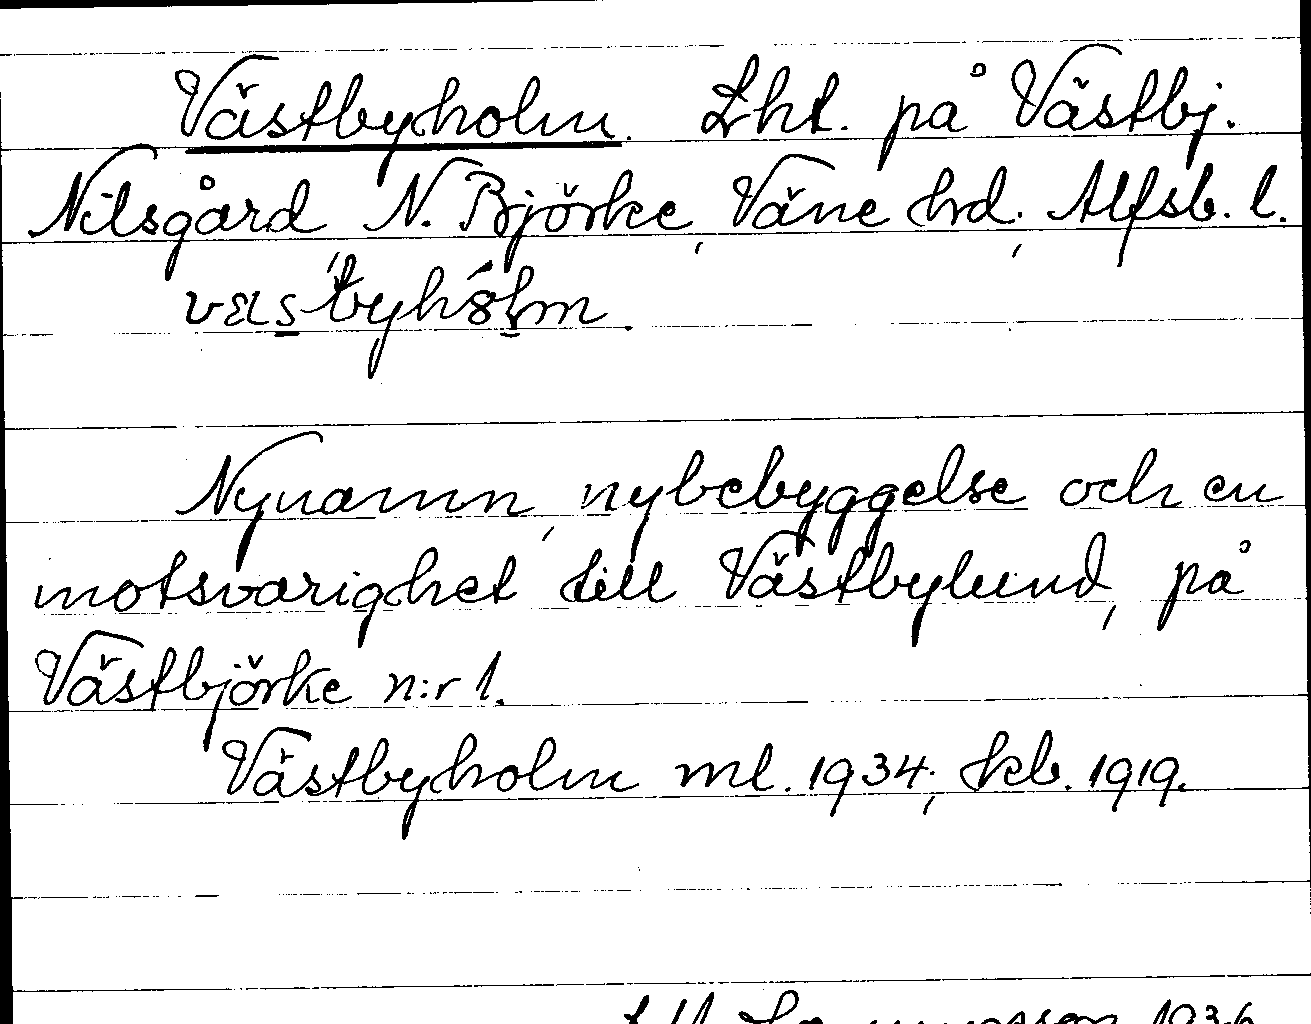 Västbyholm. Lht. på Västbj.
Nilsgård, N. Björke, Väne hd., Älfsb. l.
Nynamn, nybebyggelse och en
motsvarighet till Västbylund, på
Västbjörke n:r 1.
Västbyholm ml. 1934; kb. 1919.
1936